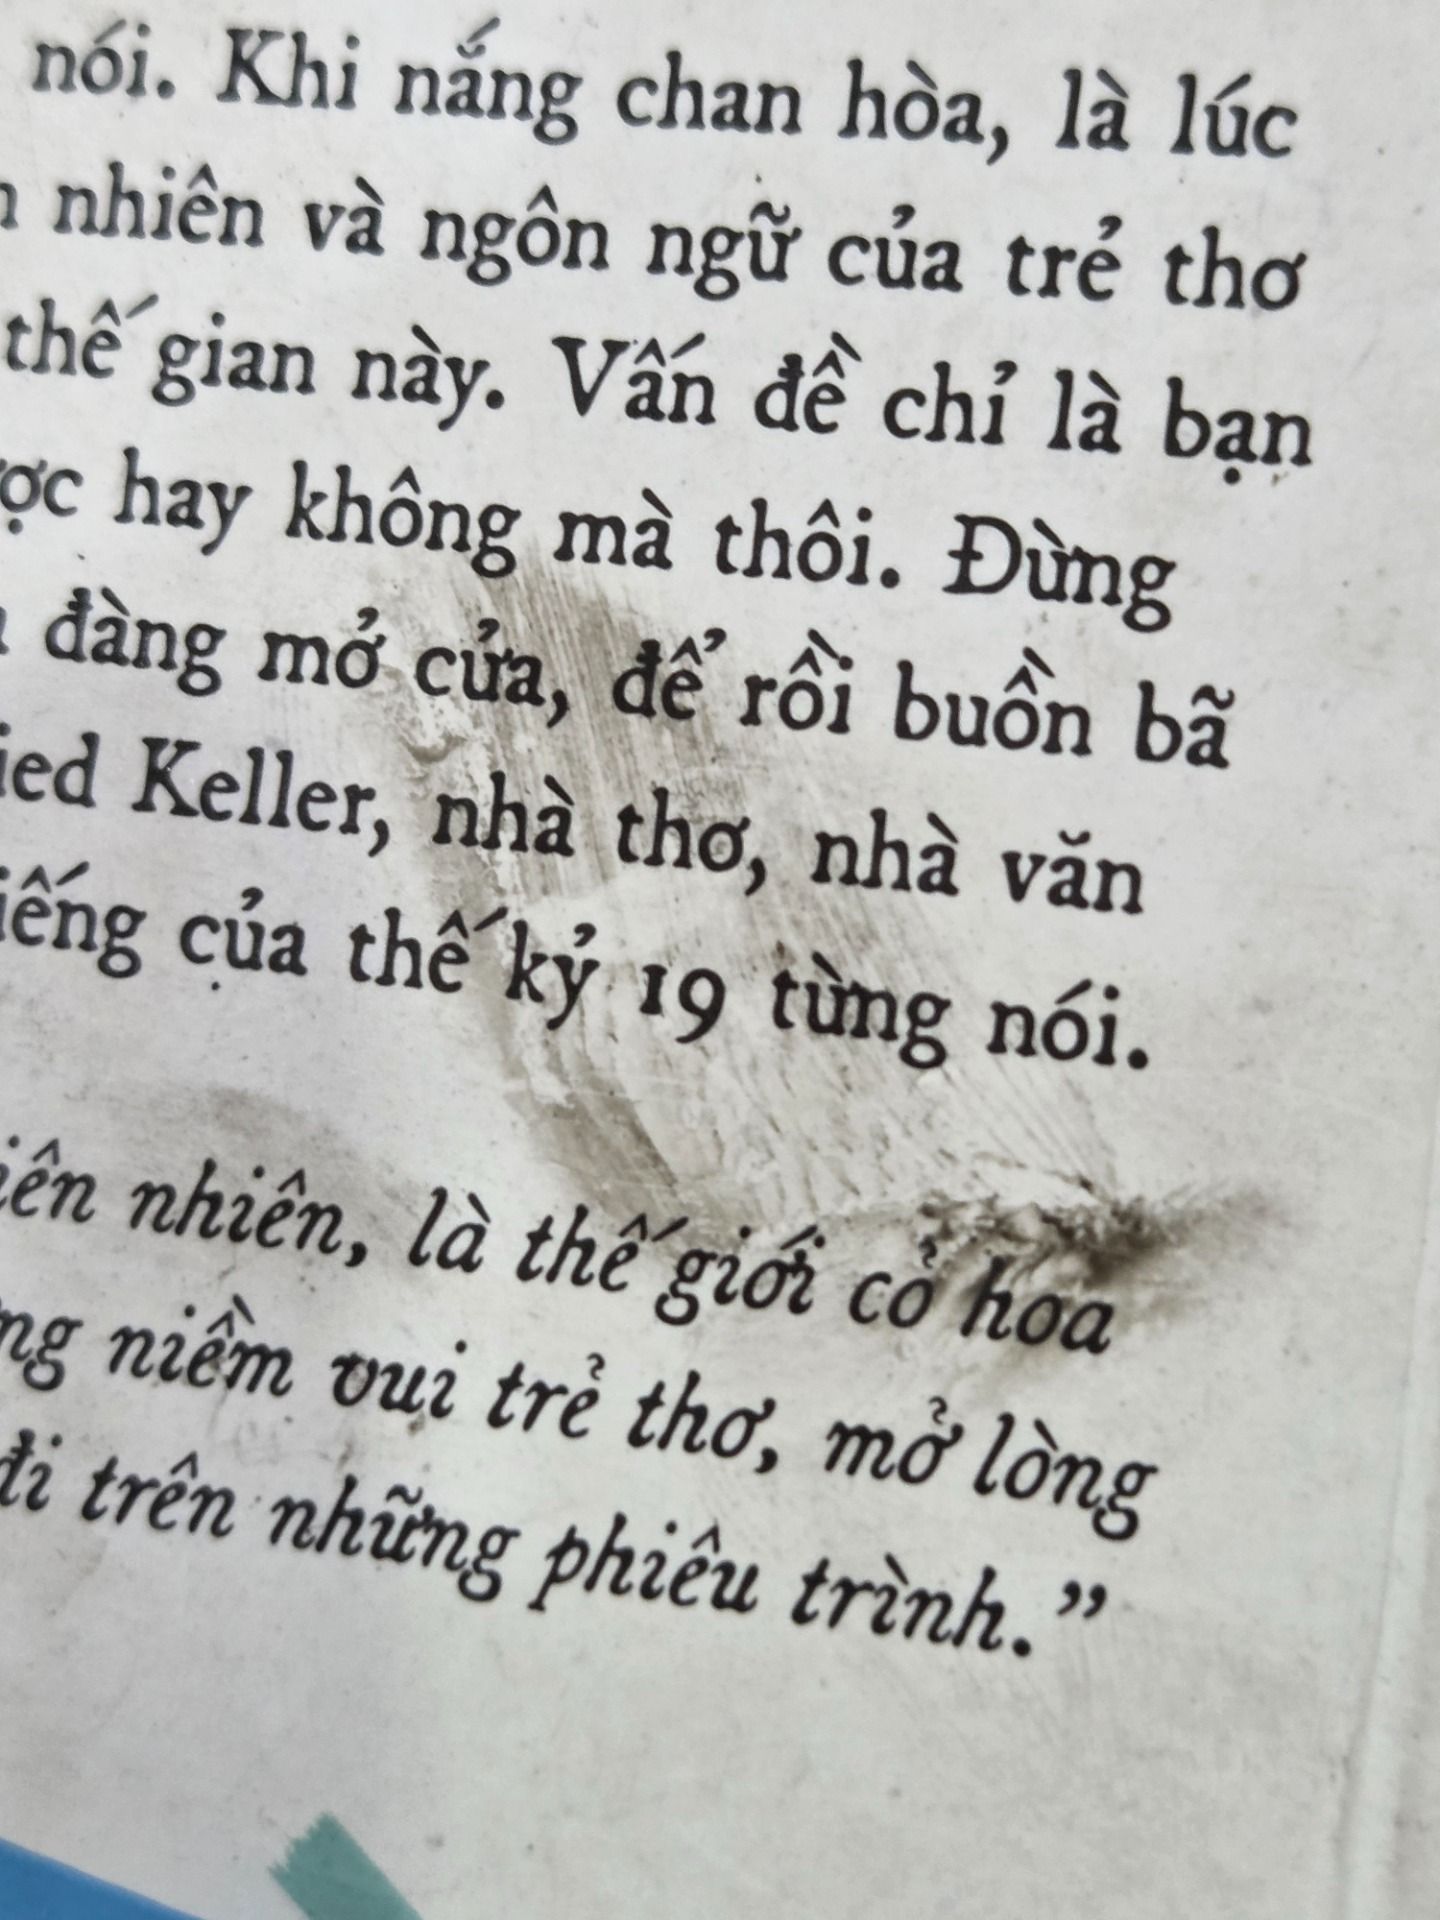 nói. Khi nắng chan hòa, là lúc
nhiên và ngôn ngữ của trẻ thơ
thế gian này. Vấn đề chỉ là bạn
ợc hay không mà thôi. Đừng
đàng mở cửa, để rồi buồn bã
ied Keller, nhà thơ, nhà văn
iếng của thế kỷ 19 từng nói.
iên nhiên, là thế giới cỏ hoa
ng niềm vui trẻ thơ, mở lòng
đi trên những phiêu trình.”